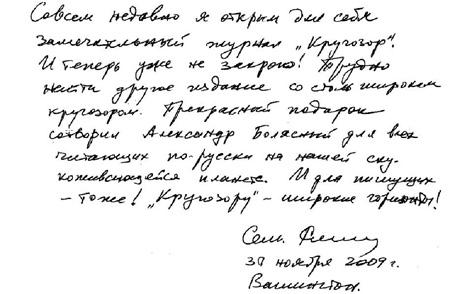 Совсем недавно я открыл для себя
замечательный журнал „Кругозор".
И теперь уже не закрою! Трудно
найти другое издание со столь широким
кругозором. Прекрасный подарок
сотворил Александр Болясный для всех
читающих по-русски на нашей ску-
коживающейся планете. И для пишущих
– тоже! „Кругозору" – широкие горизонты!
Сем.
30 ноября 2009 г.
Вашингтон.